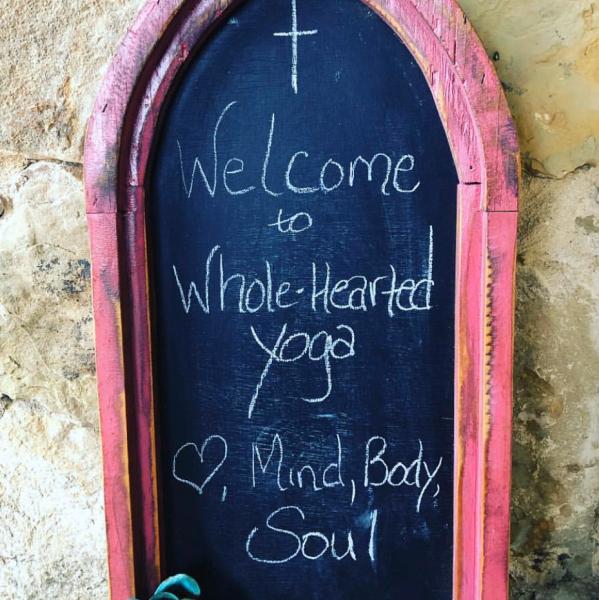 Welcome
to
Whole-Hearted
Yoga
♡, Mind, Body,
Soul